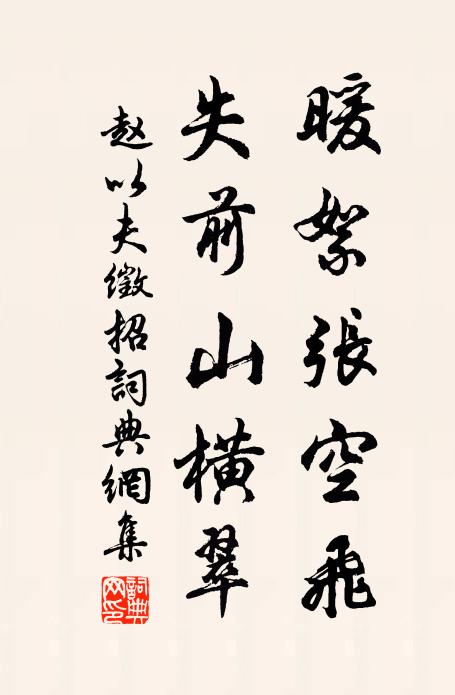 暖絮張空飛
失前山橫翠
赵以夫徵招詞典網集
詞典
网印